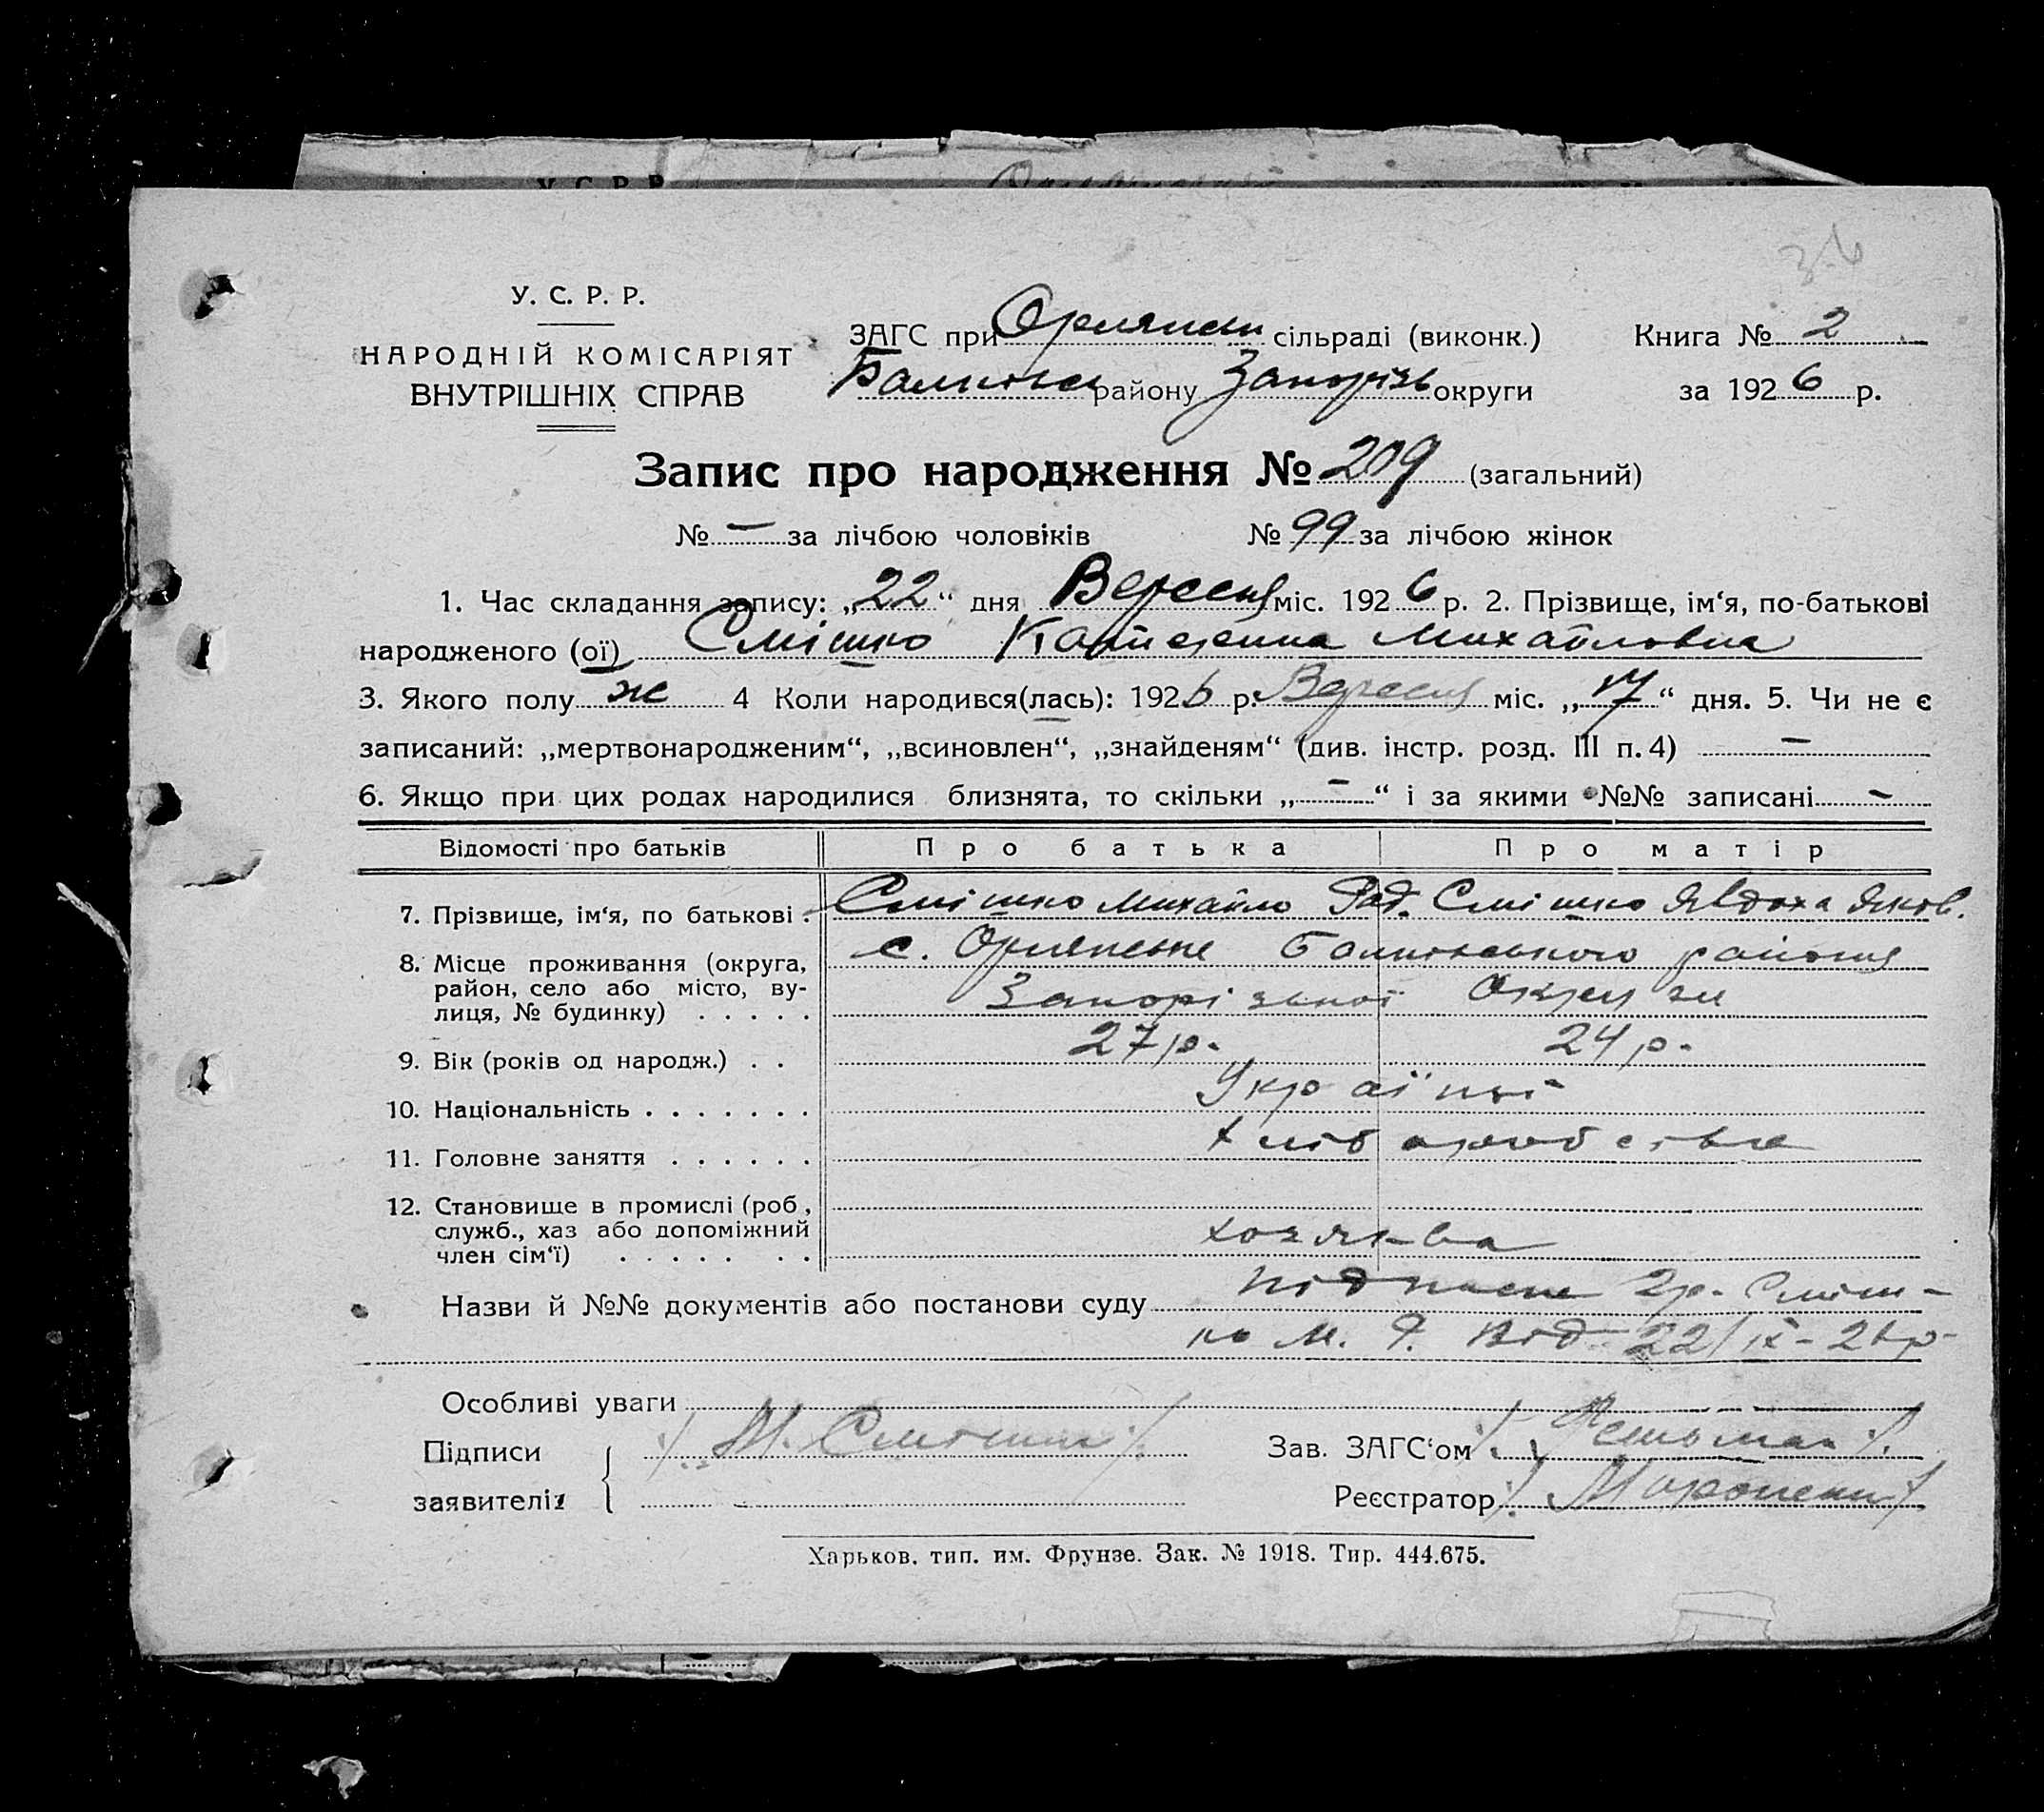 36
У. С. Р. Р.
НАРОДНІЙ КОМІСАРІЯТ
ВНУТРІШНІХ СПРАВ
ЗАГС при Орлянськ сільраді (виконк.) Книга № 2
району Запорізь округи за 1926 р.
Запис про народження № 209 (загальний)
№ — за лічбою чоловіків № 99 за лічбою жінок
1. Час складання запису: „22“ дня Вересня міс. 1926 р. 2. Прізвище, ім‘я, по-батькові
народженого (ої) Смішко Катерина Михайловна
3. Якого полу ж 4 Коли народився(лась): 1926 р. Вересня міс. „17“ дня. 5. Чи не є
записаний: „мертвонародженим“, „всиновлен“, „знайденям“ (див. інстр. розд. III п. 4) —
6. Якщо при цих родах народилися близнята, то скільки „—“ і за якими №№ записані —
Відомості про батьків Про батька Про матір
7. Прізвище, ім‘я, по батькові . Смішко Михайло Смішко Явдоха Яков.
8. Місце проживання (округа, с. Орлянське Балківського района
район, село або місто, ву-
лиця, № будинку) . . . . . Запорізької Округи
9. Вік (років од народж.) . . 27 р. 24 р.
10. Національність . . . . . . . Українці
11. Головне заняття . . . . . . Хліборобство
12. Становище в промислі (роб,
служб., хаз або допоміжний
член сім‘ї) . . . . . . . хозяїва
Назви й №№ документів або постанови суду підписка гр. Сміш-
ко М. від 22/IX-26 р.
Особливі уваги
Підписи М. Смішко Зав. ЗАГС‘ом
заявителів Реєстратор
Харьков. тип. им. Фрунзе. Зак. № 1918. Тир. 444.675.